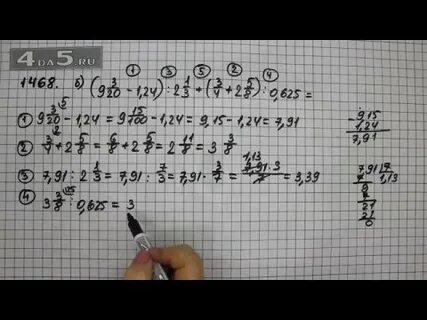 4ДА5.RU
1468. б) (9 3/20 - 1,24) : 2 1/3 + (3/4 + 2 5/8) : 0,625 =
① ③ ⑤ ② ④
① 9 3/20 ⁵ - 1,24 = 9 15/100 - 1,24 = 9,15 - 1,24 = 7,91
② 3/4 ² + 2 5/8 = 6/8 + 2 5/8 = 2 11/8 = 3 3/8
③ 7,91 : 2 1/3 = 7,91 : 7/3 = 7,91 · 3/7 = 1,13 7,91 · 3 / 7 = 3,39
④ 3 3/8 ¹²⁵ : 0,625 = 3
- 9,15
1,24
7,91
7,91 | 7
7 | 1,13
9
7
21
21
0